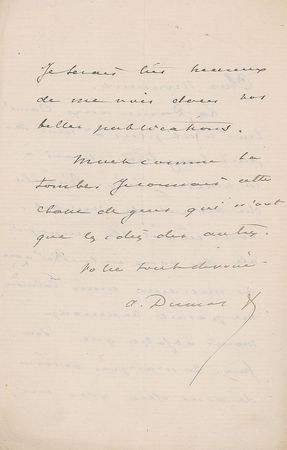 Je serais très heureux
de me voir dans vos
belles publications.
Muet comme la
tombe. Je connais cette
classe de gens qui n'ont
que les idées des autres.
Votre tout dévoué
A. Dumas